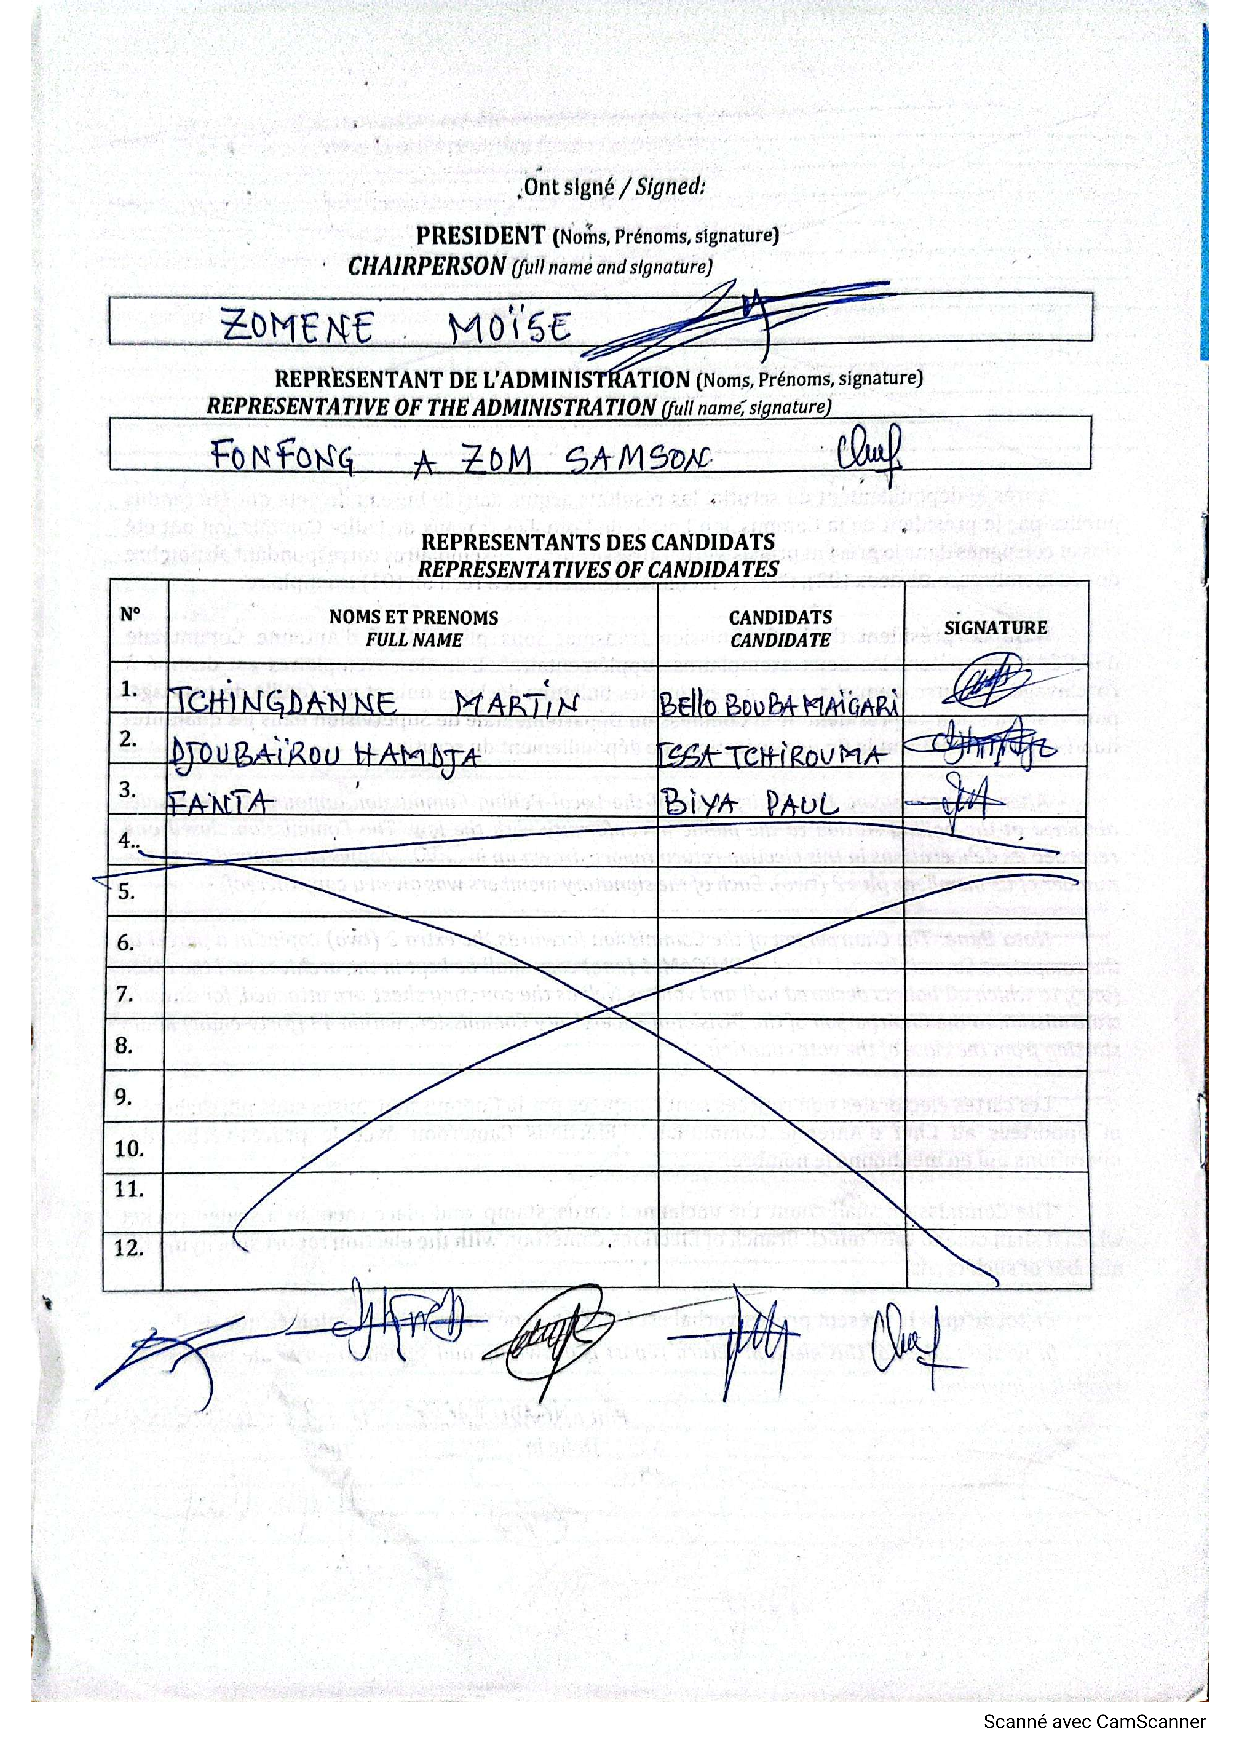 Ont signé / Signed:
PRESIDENT (Noms, Prénoms, signature)
CHAIRPERSON (full name and signature)
ZOMENE MOÏSE
REPRESENTANT DE L'ADMINISTRATION (Noms, Prénoms, signature)
REPRESENTATIVE OF THE ADMINISTRATION (full name, signature)
FONFONG A ZOM SAMSON
REPRESENTANTS DES CANDIDATS
REPRESENTATIVES OF CANDIDATES
N° NOMS ET PRENOMS CANDIDATS SIGNATURE
FULL NAME CANDIDATE
1. TCHINGDANNE MARTIN BELLO BOUBA MAÏGARI
2. DJOUBAÏROU HAMDJA ISSA TCHIROUMA
3. FANTA BIYA PAUL
4.
5.
6.
7.
8.
9.
10.
11.
12.
Scanné avec CamScanner